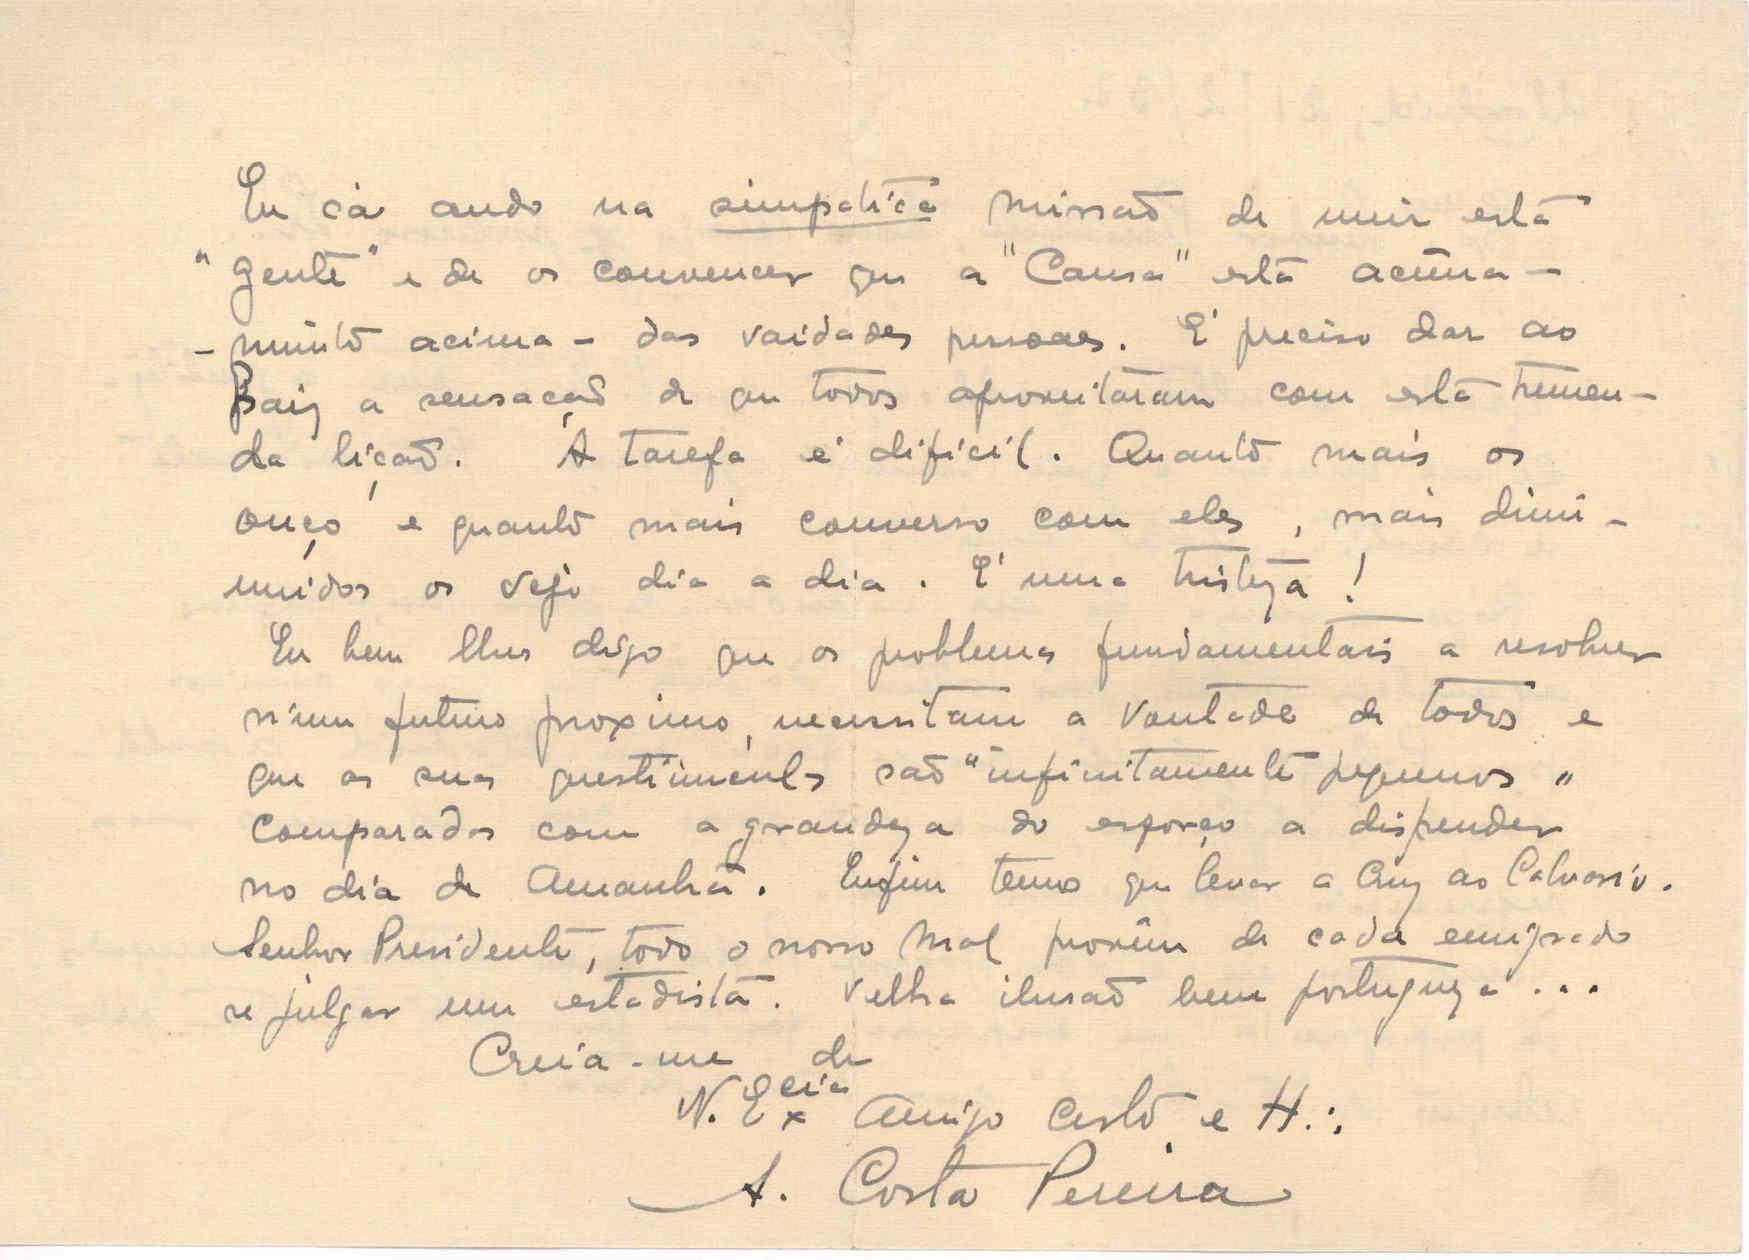 Eu cá ando na simpatica missaõ de unir esta
"gente" e de os convencer que a "Causa" está acima -
- muito acima - das vaidades pessoaes. É preciso dar ao
Paiz a sensaçaõ de que todos aproveitaram com esta tremen-
da liçaõ. A tarefa é dificil. Quanto mais os
ouço e quanto mais converso com eles, mais dimi-
nuidos os vejo dia a dia. É uma tristeza!
Eu bem lhes digo que os problemas fundamentais a resolver
n'um futuro proximo, necessitam a vontade de todos e
que as suas questiunculas saõ "infinitamente pequenos"
comparados com a grandeza do esforço a dispender
no dia de Amanhã. Enfim temos que levar a Cruz ao Calvario.
Senhor Presidente, todo o nosso mal provêm de cada emigrado
se julgar um estadista. Velha ilusaõ bem portugueza...
Creia-me de
V. Excia Amigo certo e H.:.
A. Costa Pereira